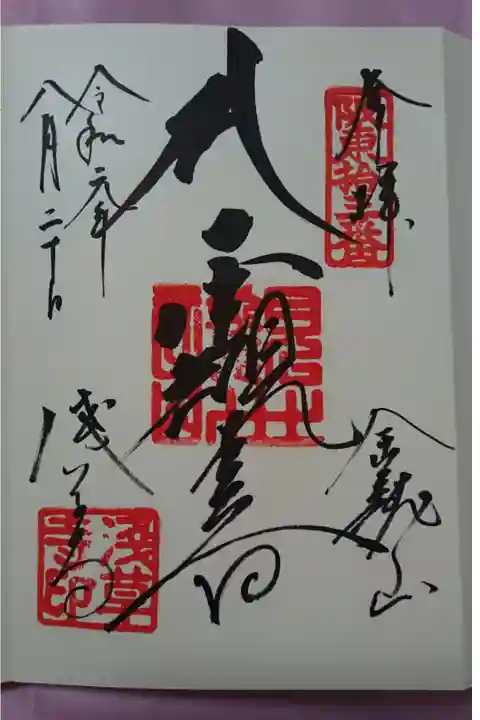 奉拝
阪東拾三番
金龍山
聖観世音
令和元年
八月二十日
浅草寺
浅草寺印